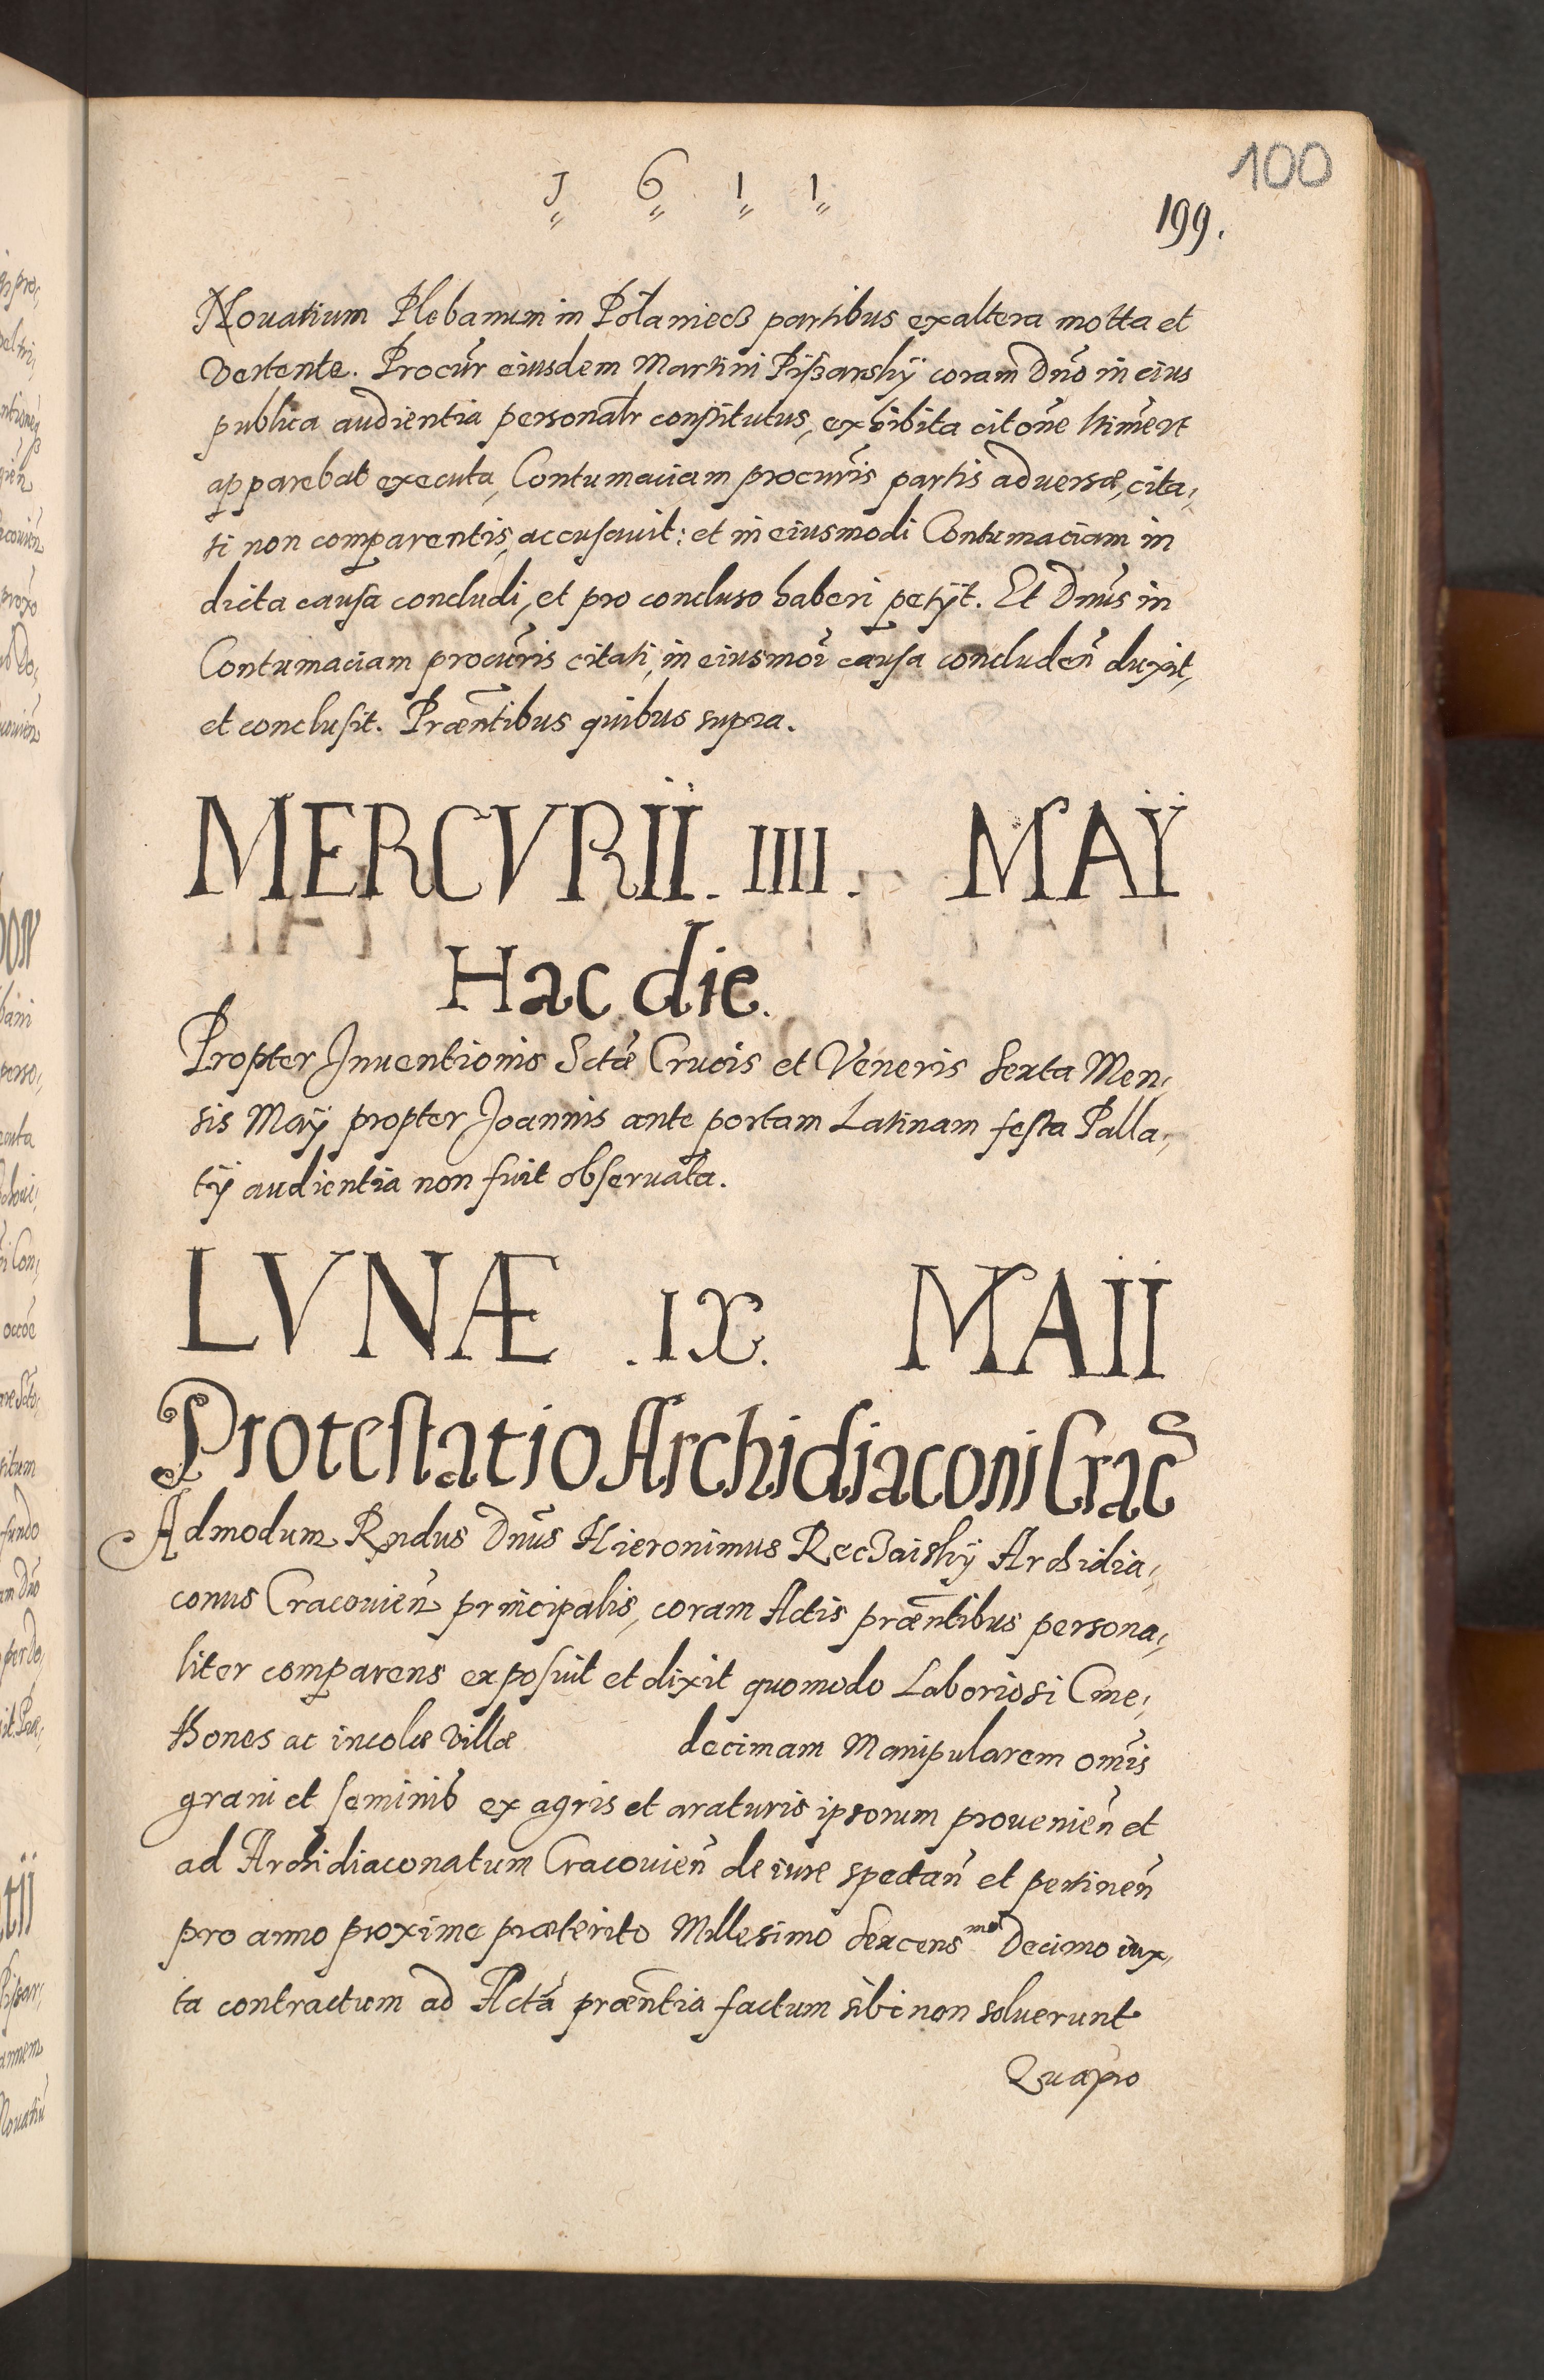 100
J 6 1 1
199.
Nouatium Plebanum in Polaniecz partibus ex altera motta et
vertente. Procur̃ eiusdem Martini Pisarskÿ coram Dño in eius
publica audientia personalr constitutus, exhibita citoñe
apparebat executa, Contumaciam procuris partis aduersæ, cita,
ti non comparentis, accusauit: et in eiusmodi Contumaciam in
dicta causa concludi, et pro concluso haberi petÿt. Et Dnus in
Contumaciam procuris citati, in eiusmoi causa concludeñ duxit,
et conclusit. Præntibus quibus supra.
MERCVRII. IIII. MAŸ
Hac die.
Propter Inuentionis Sctæ Crucis et Veneris Sexta Men,
sis Maÿ propter Joannis ante portam Latinam festa Palla,
tÿ audientia non fuit obseruata.
LVNÆ .IX. MAII
Protestatio Archidiaconi Crac̃
Admodum Rndus Dnus Hieronimus Reczaiskÿ Archidia,
conus Cracouieñ principalis, coram Actis præntibus persona,
liter comparens exposuit et dixit quomodo Laboriosi Cme,
thones ac incolæ villæ decimam Manipularem omis
grani et seminis ex agris et araturis ipsorum prouenieñ et
ad Archidiaconatum Cracouieñ de iure spectañ et pertineñ
pro anno proxime præterito Millesimo Sexcens^mo Decimo iux,
ta contractum ad Acta præntia factum sibi non soluerunt
Quapro